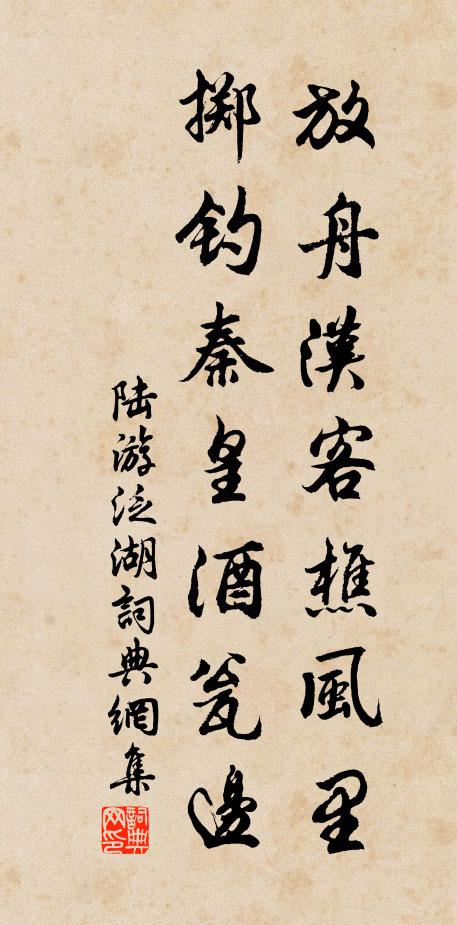 放舟漢客樵風里
掷钓秦皇酒瓮邊
陆游泛湖詞典網集
詞典网印